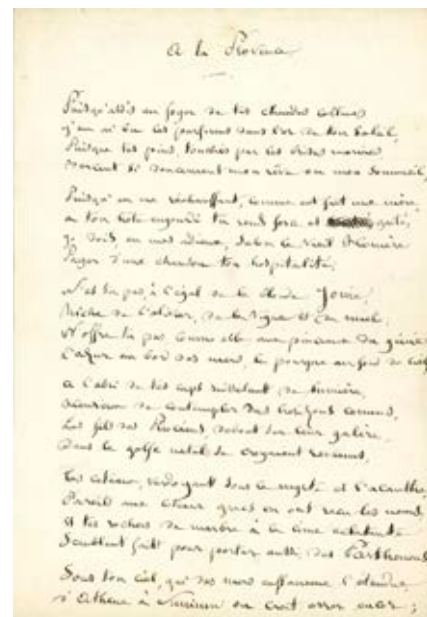 A la Provence
Puisqu'assis au foyer de tes chaudes collines
J'en ai bu les parfums dans l'or de ton soleil,
Puisque tes pins, touchés par les brises marines
si doucement mon rêve ou mon sommeil,
Puisqu'en me réchauffant, comme eut fait une mère,
A ton hôte engourdi tu rends force et gaîté,
Je dois, en mes adieux, selon le vieil Homère
Payer d'une chanson ton hospitalité.
N'es tu pas, à l'égal de la blonde Ionie,
Riche de l'olivier, de la vigne et du miel,
N'offre tu pas comme elle aux pinceaux du génie
L'azur au bord des mers, la pourpre au fond du ciel
A l'abri de tes caps ruisselant de lumière,
de contempler des horizons connus,
Les fils des Phocéens, devant leur galère,
Dans le golfe natal se croyaient revenus.
Tes coteaux, verdoyant sous le myrte et l'acanthe,
Pareils aux chœurs grecs en ont reçu les noms
Et tes rochers de marbre à la cime éclatante
Semblent faits pour porter aussi des Parthénons
Sous ton ciel, qui des mers enflamme l'étendue,
d'Athène à Sunium on croit errer encor;